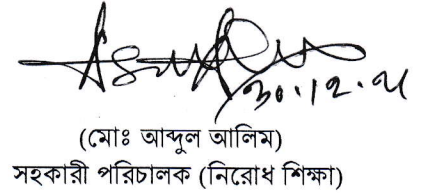 ৩০.১২.২১
(মোঃ আব্দুল আলিম)
সহকারী পরিচালক (নিরোধ শিক্ষা)